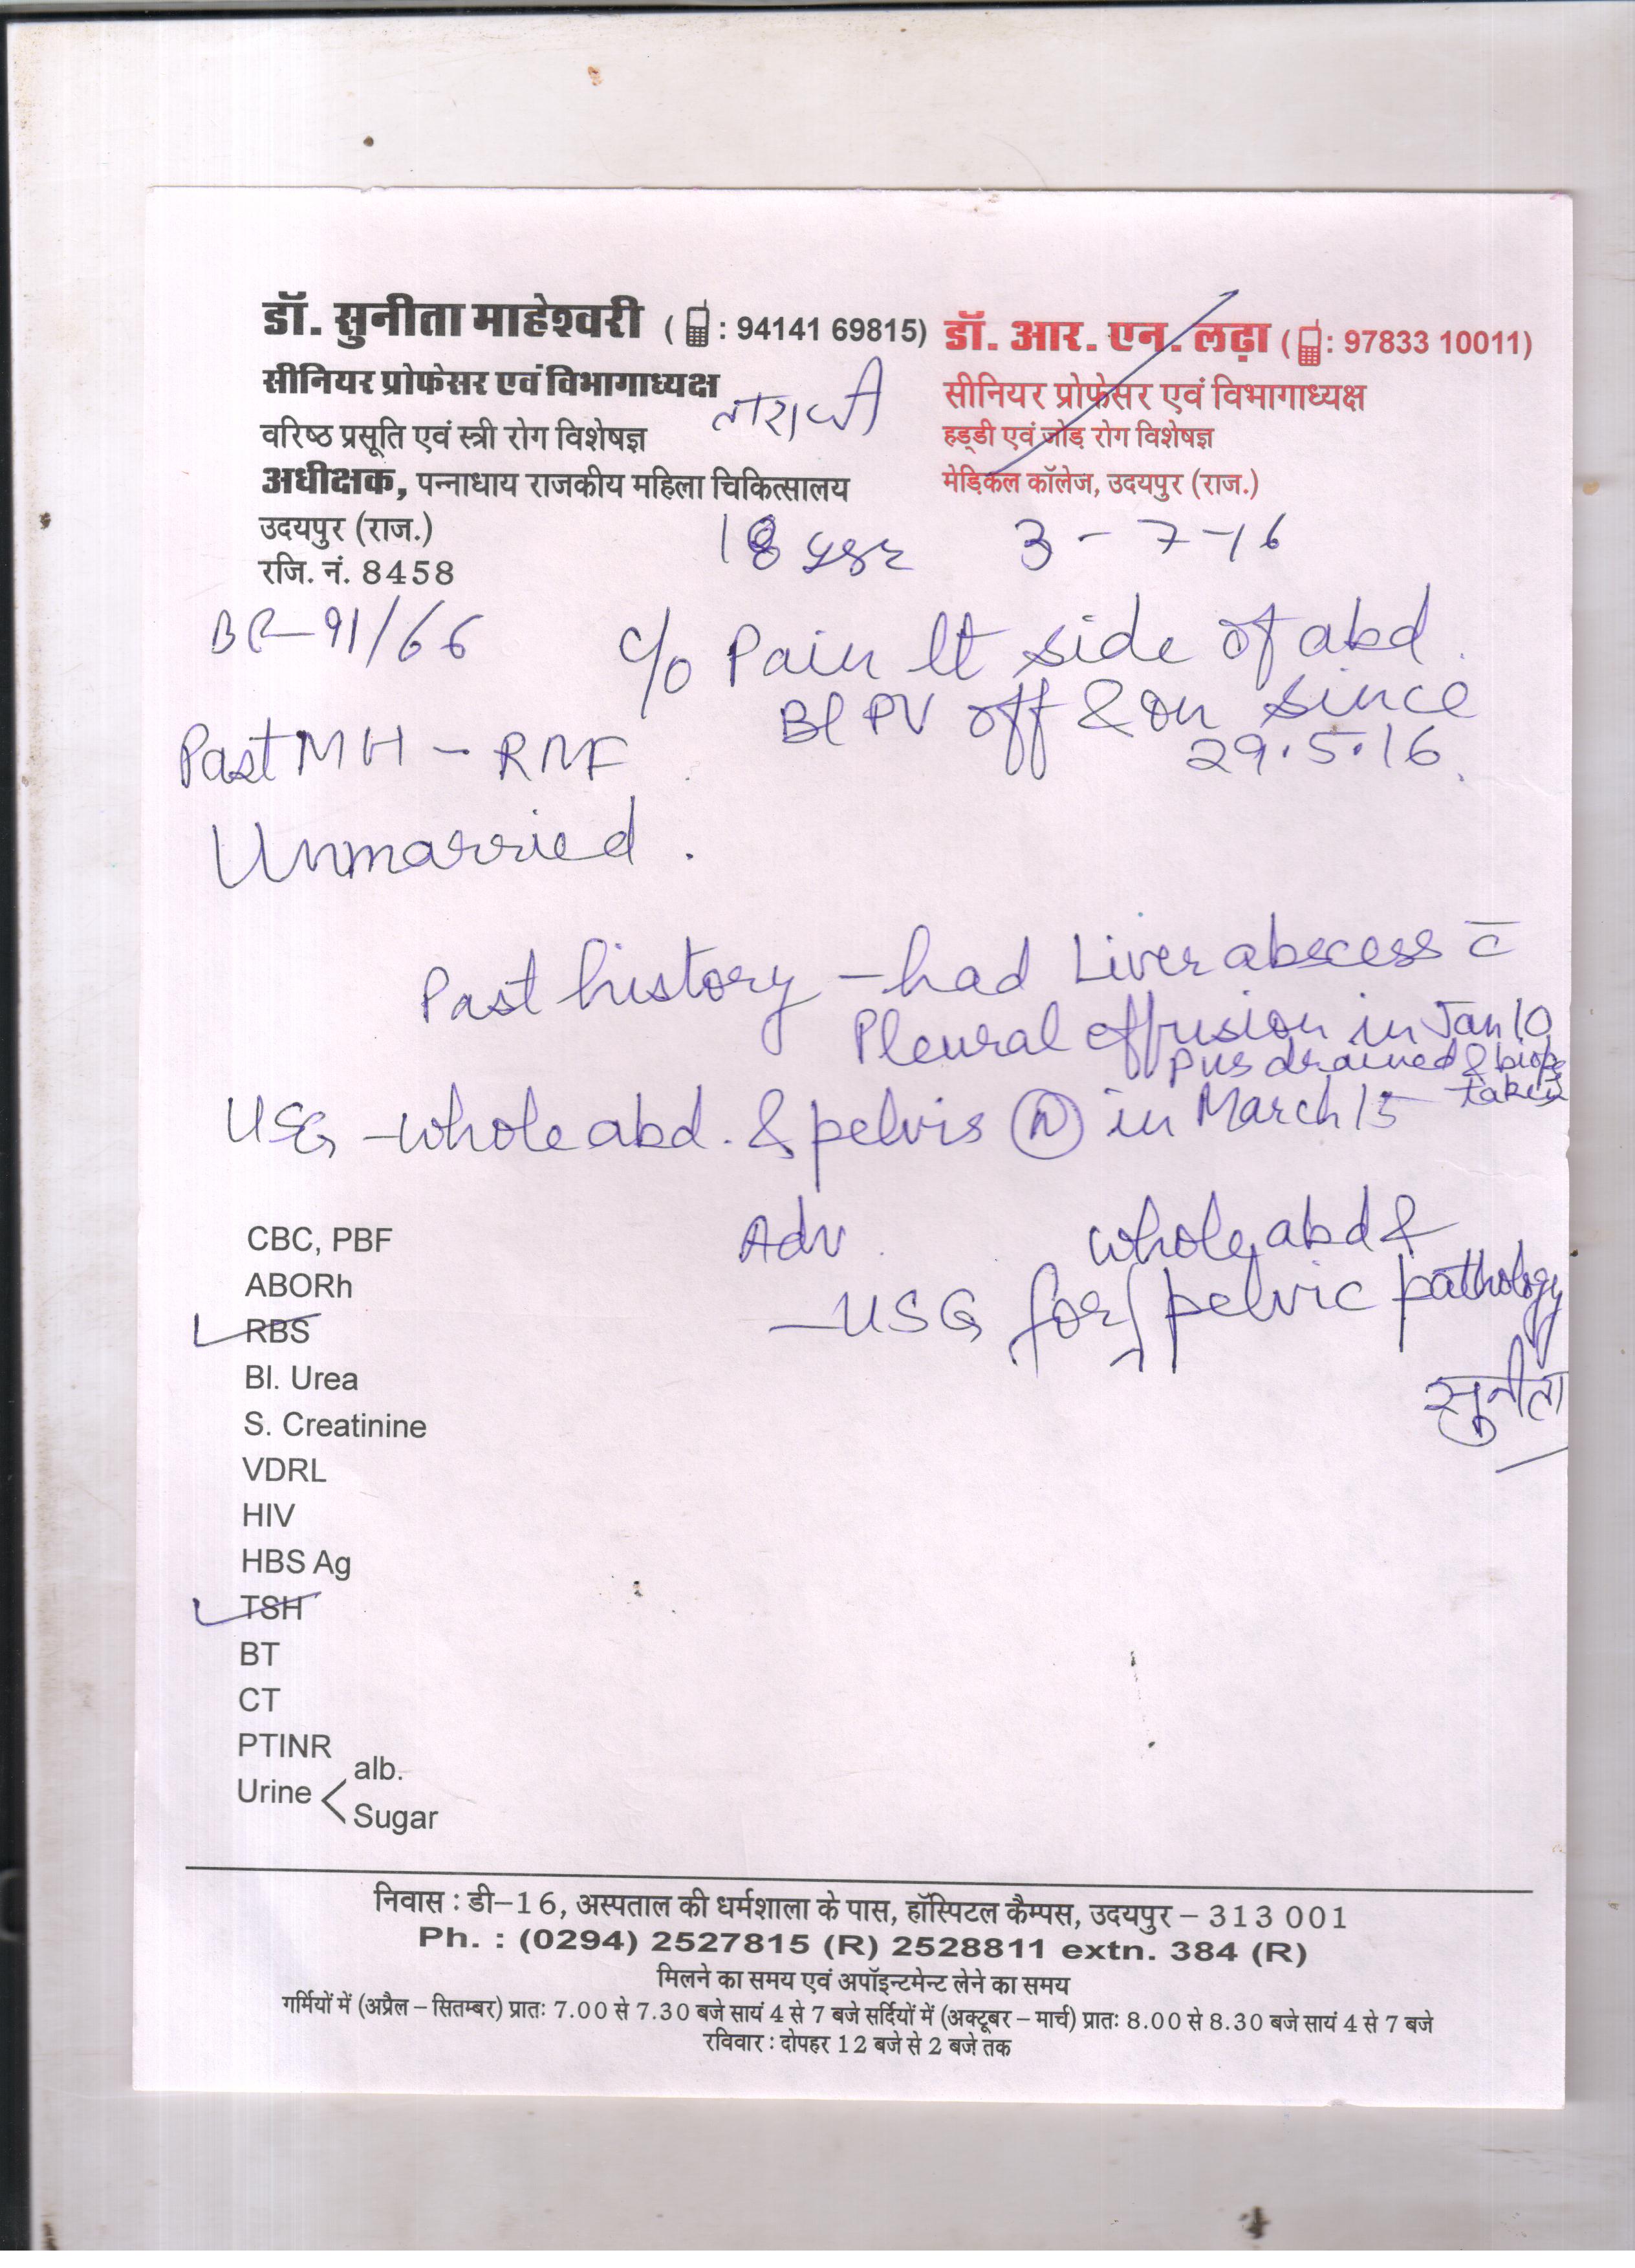 डॉ. सुनीता माहेश्वरी ( : 94141 69815)
सीनियर प्रोफेसर एवं विभागाध्यक्ष
वरिष्ठ प्रसूति एवं स्त्री रोग विशेषज्ञ
अधीक्षक, पन्नाधाय राजकीय महिला चिकित्सालय
उदयपुर (राज.)
रजि. नं. 8458
डॉ. आर. एन. लढ़ा ( : 97833 10011)
सीनियर प्रोफेसर एवं विभागाध्यक्ष
हड्डी एवं जोड़ रोग विशेषज्ञ
मेड़िकल कॉलेज, उदयपुर (राज.)
18 3-7-16
BP-91/66
c/o Pain lt side of abd.
Bl PV off & on since
29.5.16.
Past MH - RNF
Unmarried.
Past history - had Liver abscess c̄
Pleural effusion in Jan 10
pus drained &
taken
USG - whole abd. & pelvis (N) in March 15
Adv. whole abd &
- USG for pelvic pathology
सुनीता
CBC, PBF
ABORh
RBS
Bl. Urea
S. Creatinine
VDRL
HIV
HBS Ag
TSH
BT
CT
PTINR
Urine < alb.
Sugar
निवास : डी-16, अस्पताल की धर्मशाला के पास, हॉस्पिटल कैम्पस, उदयपुर - 313 001
Ph. : (0294) 2527815 (R) 2528811 extn. 384 (R)
मिलने का समय एवं अपॉइन्टमेन्ट लेने का समय
गर्मियों में (अप्रैल - सितम्बर) प्रातः 7.00 से 7.30 बजे सायं 4 से 7 बजे सर्दियों में (अक्टूबर - मार्च) प्रातः 8.00 से 8.30 बजे सायं 4 से 7 बजे
रविवार : दोपहर 12 बजे से 2 बजे तक